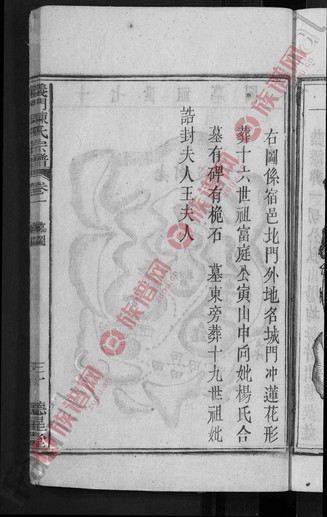 右圖係宿邑北門外地名城門冲蓮花形
葬十六世祖富庭公寅山申向妣楊氏合
墓有碑有桅石 墓東旁葬十九世祖妣
誥封夫人王夫人
義門陳氏宗譜 卷二 墓圖 三十
族谱网